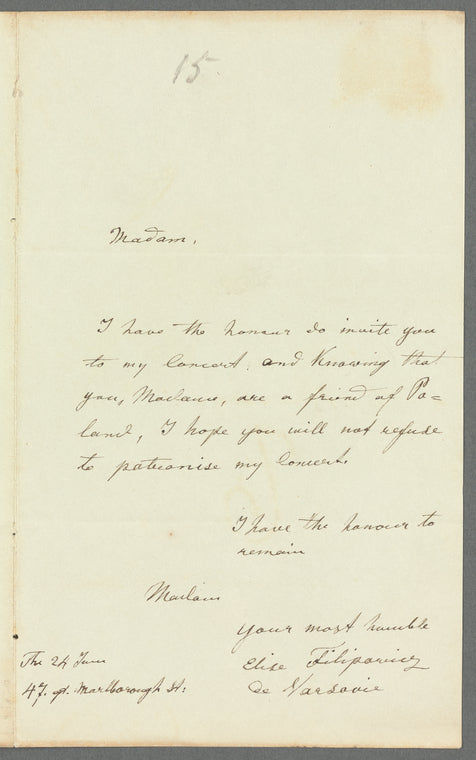 15.
Madam,
I have the honour to invite you
to my Concert, and Knowing that
you, Madame, are a friend of Po=
land, I hope you will not refuse
to patronise my Concert.
I have the honour to
remain
Madam
your most humble
The 24 June
Elise Filipowicz
47. gt. Marlborough St:
de Varsovie